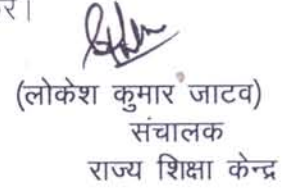 र।
(लोकेश कुमार जाटव)
संचालक
राज्य शिक्षा केन्द्र